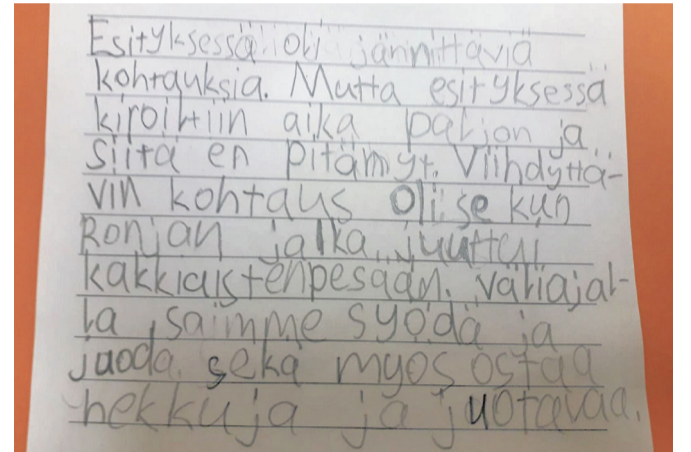 Esityksessä oli jännittäviä
kohtauksia. Mutta esityksessä
kiroiltiin aika paljon ja
siitä en pitämyt. Viihdyttä-
vin kohtaus oli se kun
Ronjan jalka juuttui
kakkiaistenpesään. väliajal-
la saimme syödä ja
juoda sekä myös ostaa
hekkuja ja juotavaa.